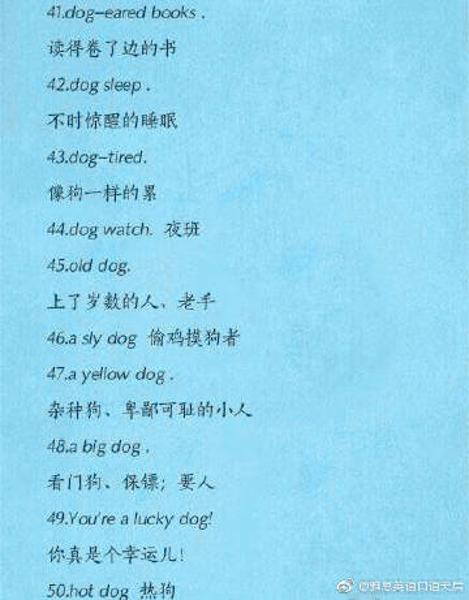 41.dog-eared books .
读得卷了边的书
42.dog sleep .
不时惊醒的睡眠
43.dog-tired.
像狗一样的累
44.dog watch. 夜班
45.old dog.
上了岁数的人、老手
46.a sly dog 偷鸡摸狗者
47.a yellow dog .
杂种狗、卑鄙可耻的小人
48.a big dog .
看门狗、保镖；要人
49.You're a lucky dog!
你真是个幸运儿!
50.hot dog 热狗
@雅思英语口语天后